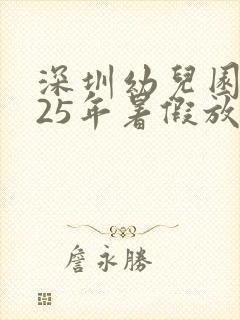 深圳幼兒園
25年暑假放
詹永勝